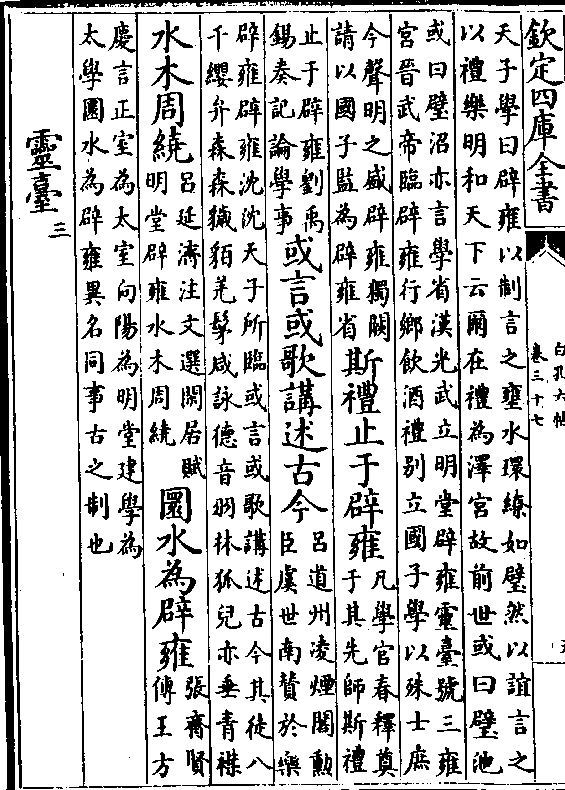 欽定四庫全書
白孔六帖
卷三十七
天子學曰辟雍以制言之壅水環繚如璧然以誼言之
以禮樂明和天下云爾在禮為澤宮故前世或曰璧池
或曰璧沼亦言學省漢光武立明堂辟雍靈臺號三雍
宮晉武帝臨辟雍行鄉飲酒禮別立國子學以殊士庶
今聲明之盛辟雍獨闕
請以國子監為辟雍省
斯禮止于辟雍
凡學官春釋奠
于其先師斯禮
止于辟雍劉禹
錫奏記論學事
或言或歌講述古今
呂道州凌煙閣勳
臣虞世南贊於樂
辟雍辟雍沈沈天子所臨或言或歌講述古今其徒八
千纓弁森森獩貊羌髳咸詠德音羽林孤兒亦垂青襟
水木周繞
呂延濟注文選閒居賦
明堂辟雍水木周繞
圜水為辟雍
張齊賢
傳王方
慶言正室為太室向陽為明堂建學為
太學圜水為辟雍異名同事古之制也
靈臺三